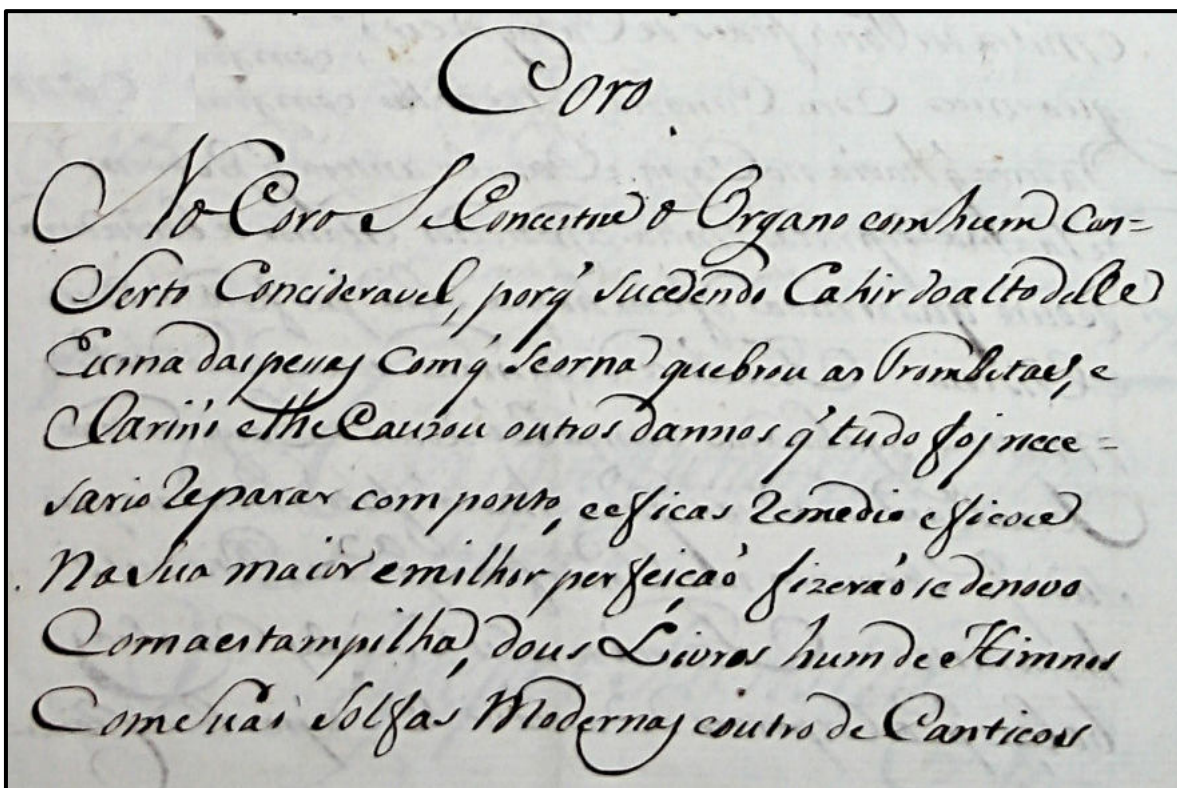 Coro
No Coro Se Concertou o Organo com hum Con=
Serto Concideravel, porq̃ sucedendo Cahir do alto delle
huma das pessas Com q̃ se orna quebrou as Trombetas, e
Clarins e lhe Cauzou outros dannos q̃ tudo foj nece=
sario Reparar com ponto, e eficas Remedio e ficou
Na Sua maior e milhor perfeicaõ fizeraõ se de novo
Com a estampilha, dous Livros hum de Himnos
Com Suas Solfas Modernas e outro de Canticos